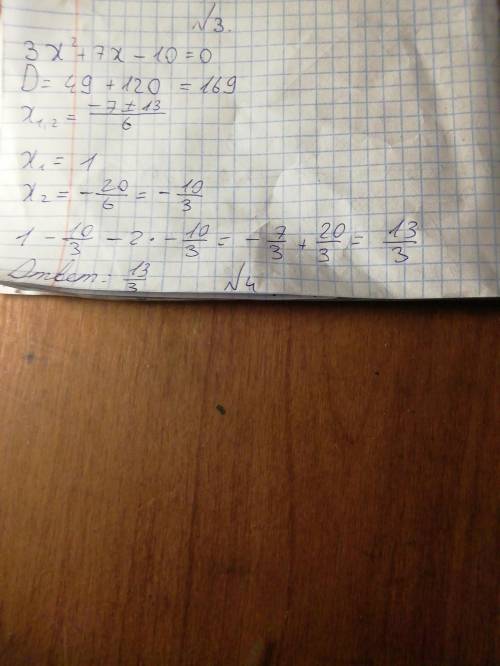 №3.
3x² + 7x - 10 = 0
D = 49 + 120 = 169
x₁,₂ = (-7 ± 13)/6
x₁ = 1
x₂ = -20/6 = -10/3
1 - 10/3 - 2 · -10/3 = -7/3 + 20/3 = 13/3
Ответ: 13/3
№4